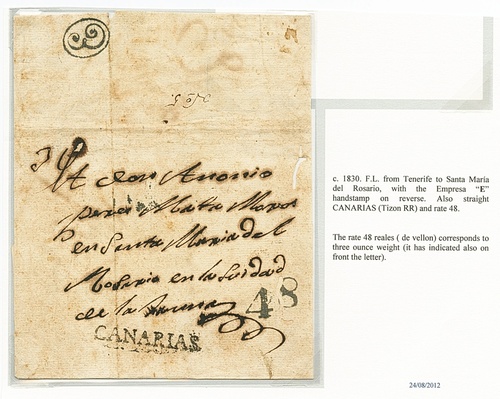 A don Antonio
perez Matra Moros
en Santa Maria del
Rosario en la Suidad
de la
48
CANARIAS
c. 1830. F.L. from Tenerife to Santa María
del Rosario, with the Empresa “E”
handstamp on reverse. Also straight
CANARIAS (Tizon RR) and rate 48.
The rate 48 reales ( de vellon) corresponds to
three ounce weight (it has indicated also on
front the letter).
24/08/2012